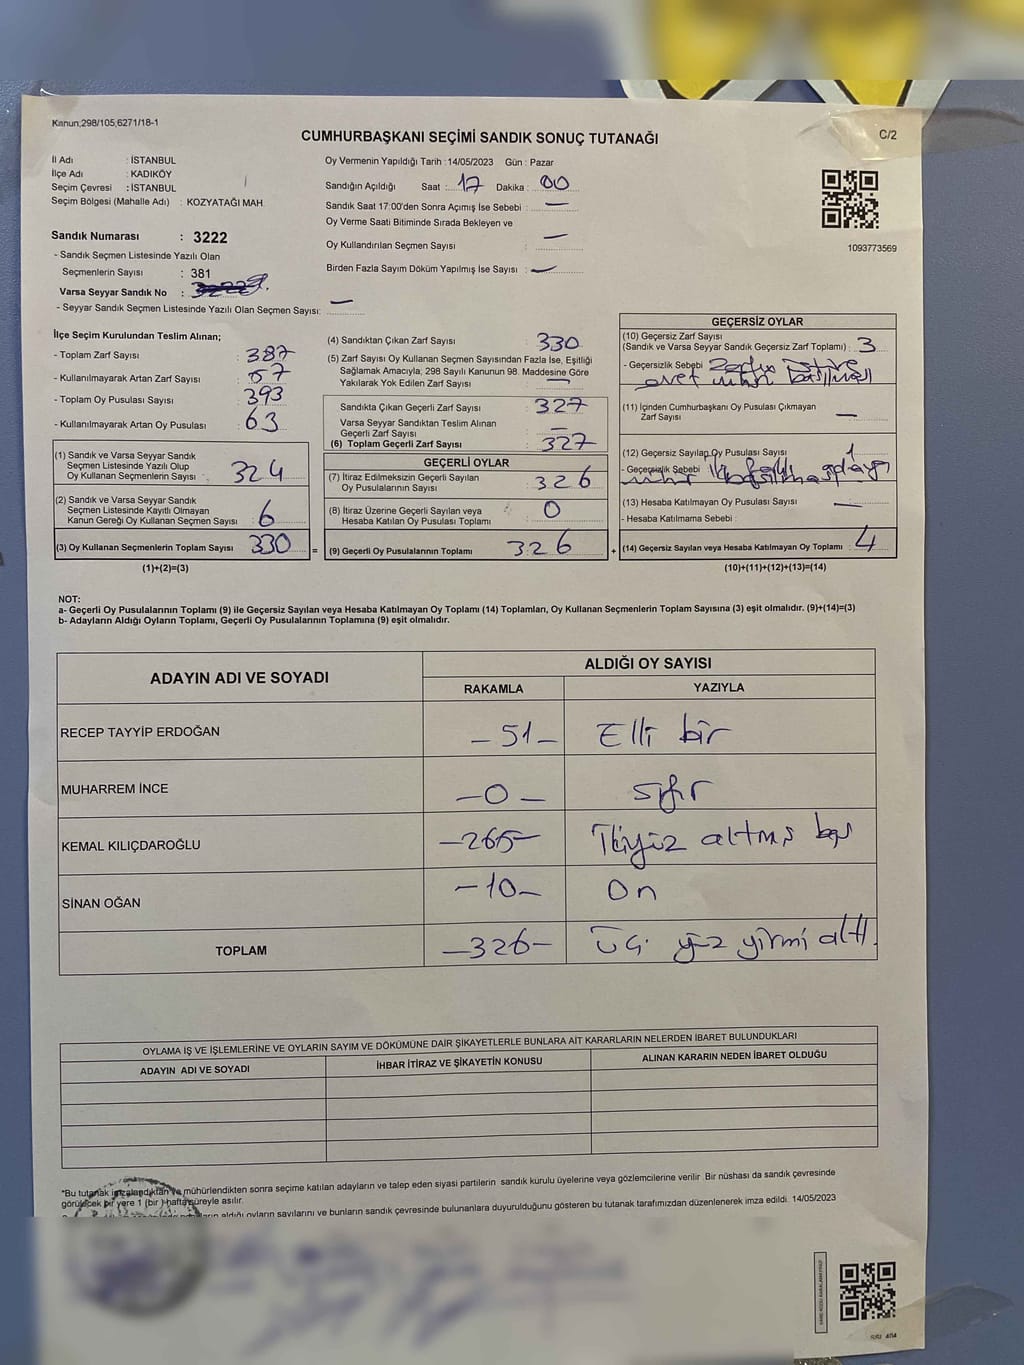 Kanun;298/105,6271/18-1
CUMHURBAŞKANI SEÇİMİ SANDIK SONUÇ TUTANAĞI
C/2
İl Adı : İSTANBUL
İlçe Adı : KADIKÖY
Seçim Çevresi : İSTANBUL
Seçim Bölgesi (Mahalle Adı) : KOZYATAĞI MAH.
Sandık Numarası : 3222
- Sandık Seçmen Listesinde Yazılı Olan
Seçmenlerin Sayısı : 381
Varsa Seyyar Sandık No :
- Seyyar Sandık Seçmen Listesinde Yazılı Olan Seçmen Sayısı: —
Oy Vermenin Yapıldığı Tarih : 14/05/2023 Gün : Pazar
Sandığın Açıldığı Saat : 17 Dakika : 00
Sandık Saat 17:00'den Sonra Açımış İse Sebebi : —
Oy Verme Saati Bitiminde Sırada Bekleyen ve
Oy Kullandırılan Seçmen Sayısı : —
Birden Fazla Sayım Döküm Yapılmış İse Sayısı : —
1093773569
İlçe Seçim Kurulundan Teslim Alınan;
- Toplam Zarf Sayısı : 387
- Kullanılmayarak Artan Zarf Sayısı : 57
- Toplam Oy Pusulası Sayısı : 393
- Kullanılmayarak Artan Oy Pusulası : 63
(1) Sandık ve Varsa Seyyar Sandık
Seçmen Listesinde Yazılı Olup
Oy Kullanan Seçmenlerin Sayısı : 324
(2) Sandık ve Varsa Seyyar Sandık
Seçmen Listesinde Kayıtlı Olmayan
Kanun Gereği Oy Kullanan Seçmen Sayısı : 6
(3) Oy Kullanan Seçmenlerin Toplam Sayısı : 330
(1)+(2)=(3)
=
(4) Sandıktan Çıkan Zarf Sayısı : 330
(5) Zarf Sayısı Oy Kullanan Seçmen Sayısından Fazla İse, Eşitliği
Sağlamak Amacıyla; 298 Sayılı Kanunun 98. Maddesine Göre
Yakılarak Yok Edilen Zarf Sayısı : —
Sandıkta Çıkan Geçerli Zarf Sayısı : 327
Varsa Seyyar Sandıktan Teslim Alınan
Geçerli Zarf Sayısı : —
(6) Toplam Geçerli Zarf Sayısı : 327
GEÇERLİ OYLAR
(7) İtiraz Edilmeksizin Geçerli Sayılan
Oy Pusulalarının Sayısı : 326
(8) İtiraz Üzerine Geçerli Sayılan veya
Hesaba Katılan Oy Pusulası Toplamı : 0
(9) Geçerli Oy Pusulalarının Toplamı : 326
+
GEÇERSİZ OYLAR
(10) Geçersiz Zarf Sayısı
(Sandık ve Varsa Seyyar Sandık Geçersiz Zarf Toplamı) : 3
- Geçersizlik Sebebi :
evet
(11) İçinden Cumhurbaşkanı Oy Pusulası Çıkmayan
Zarf Sayısı : —
(12) Geçersiz Sayılan Oy Pusulası Sayısı : 1
- Geçersizlik Sebebi :
(13) Hesaba Katılmayan Oy Pusulası Sayısı : —
- Hesaba Katılmama Sebebi :
(14) Geçersiz Sayılan veya Hesaba Katılmayan Oy Toplamı : 4
(10)+(11)+(12)+(13)=(14)
NOT:
a- Geçerli Oy Pusulalarının Toplamı (9) ile Geçersiz Sayılan veya Hesaba Katılmayan Oy Toplamı (14) Toplamları, Oy Kullanan Seçmenlerin Toplam Sayısına (3) eşit olmalıdır. (9)+(14)=(3)
b- Adayların Aldığı Oyların Toplamı, Geçerli Oy Pusulalarının Toplamına (9) eşit olmalıdır.
ADAYIN ADI VE SOYADI
ALDIĞI OY SAYISI
RAKAMLA YAZIYLA
RECEP TAYYİP ERDOĞAN –51– Elli bir
MUHARREM İNCE –0– Sıfır
KEMAL KILIÇDAROĞLU –265– İkiyüz altmış beş
SİNAN OĞAN –10– On
TOPLAM –326– Üç yüz yirmi altı.
OYLAMA İŞ VE İŞLEMLERİNE VE OYLARIN SAYIM VE DÖKÜMÜNE DAİR ŞİKAYETLERLE BUNLARA AİT KARARLARIN NELERDEN İBARET BULUNDUKLARI
ADAYIN ADI VE SOYADI İHBAR İTİRAZ VE ŞİKAYETİN KONUSU ALINAN KARARIN NEDEN İBARET OLDUĞU
*Bu tutanak imzalandıktan ve mühürlendikten sonra seçime katılan adayların ve talep eden siyasi partilerin sandık kurulu üyelerine veya gözlemcilerine verilir Bir nüshası da sandık çevresinde
görülecek bir yere 1 (bir ) hafta süreyle asılır.
aldığı oyların sayılarını ve bunların sandık çevresinde bulunanlara duyurulduğunu gösteren bu tutanak tarafımızdan düzenlenerek imza edildi. 14/05/2023